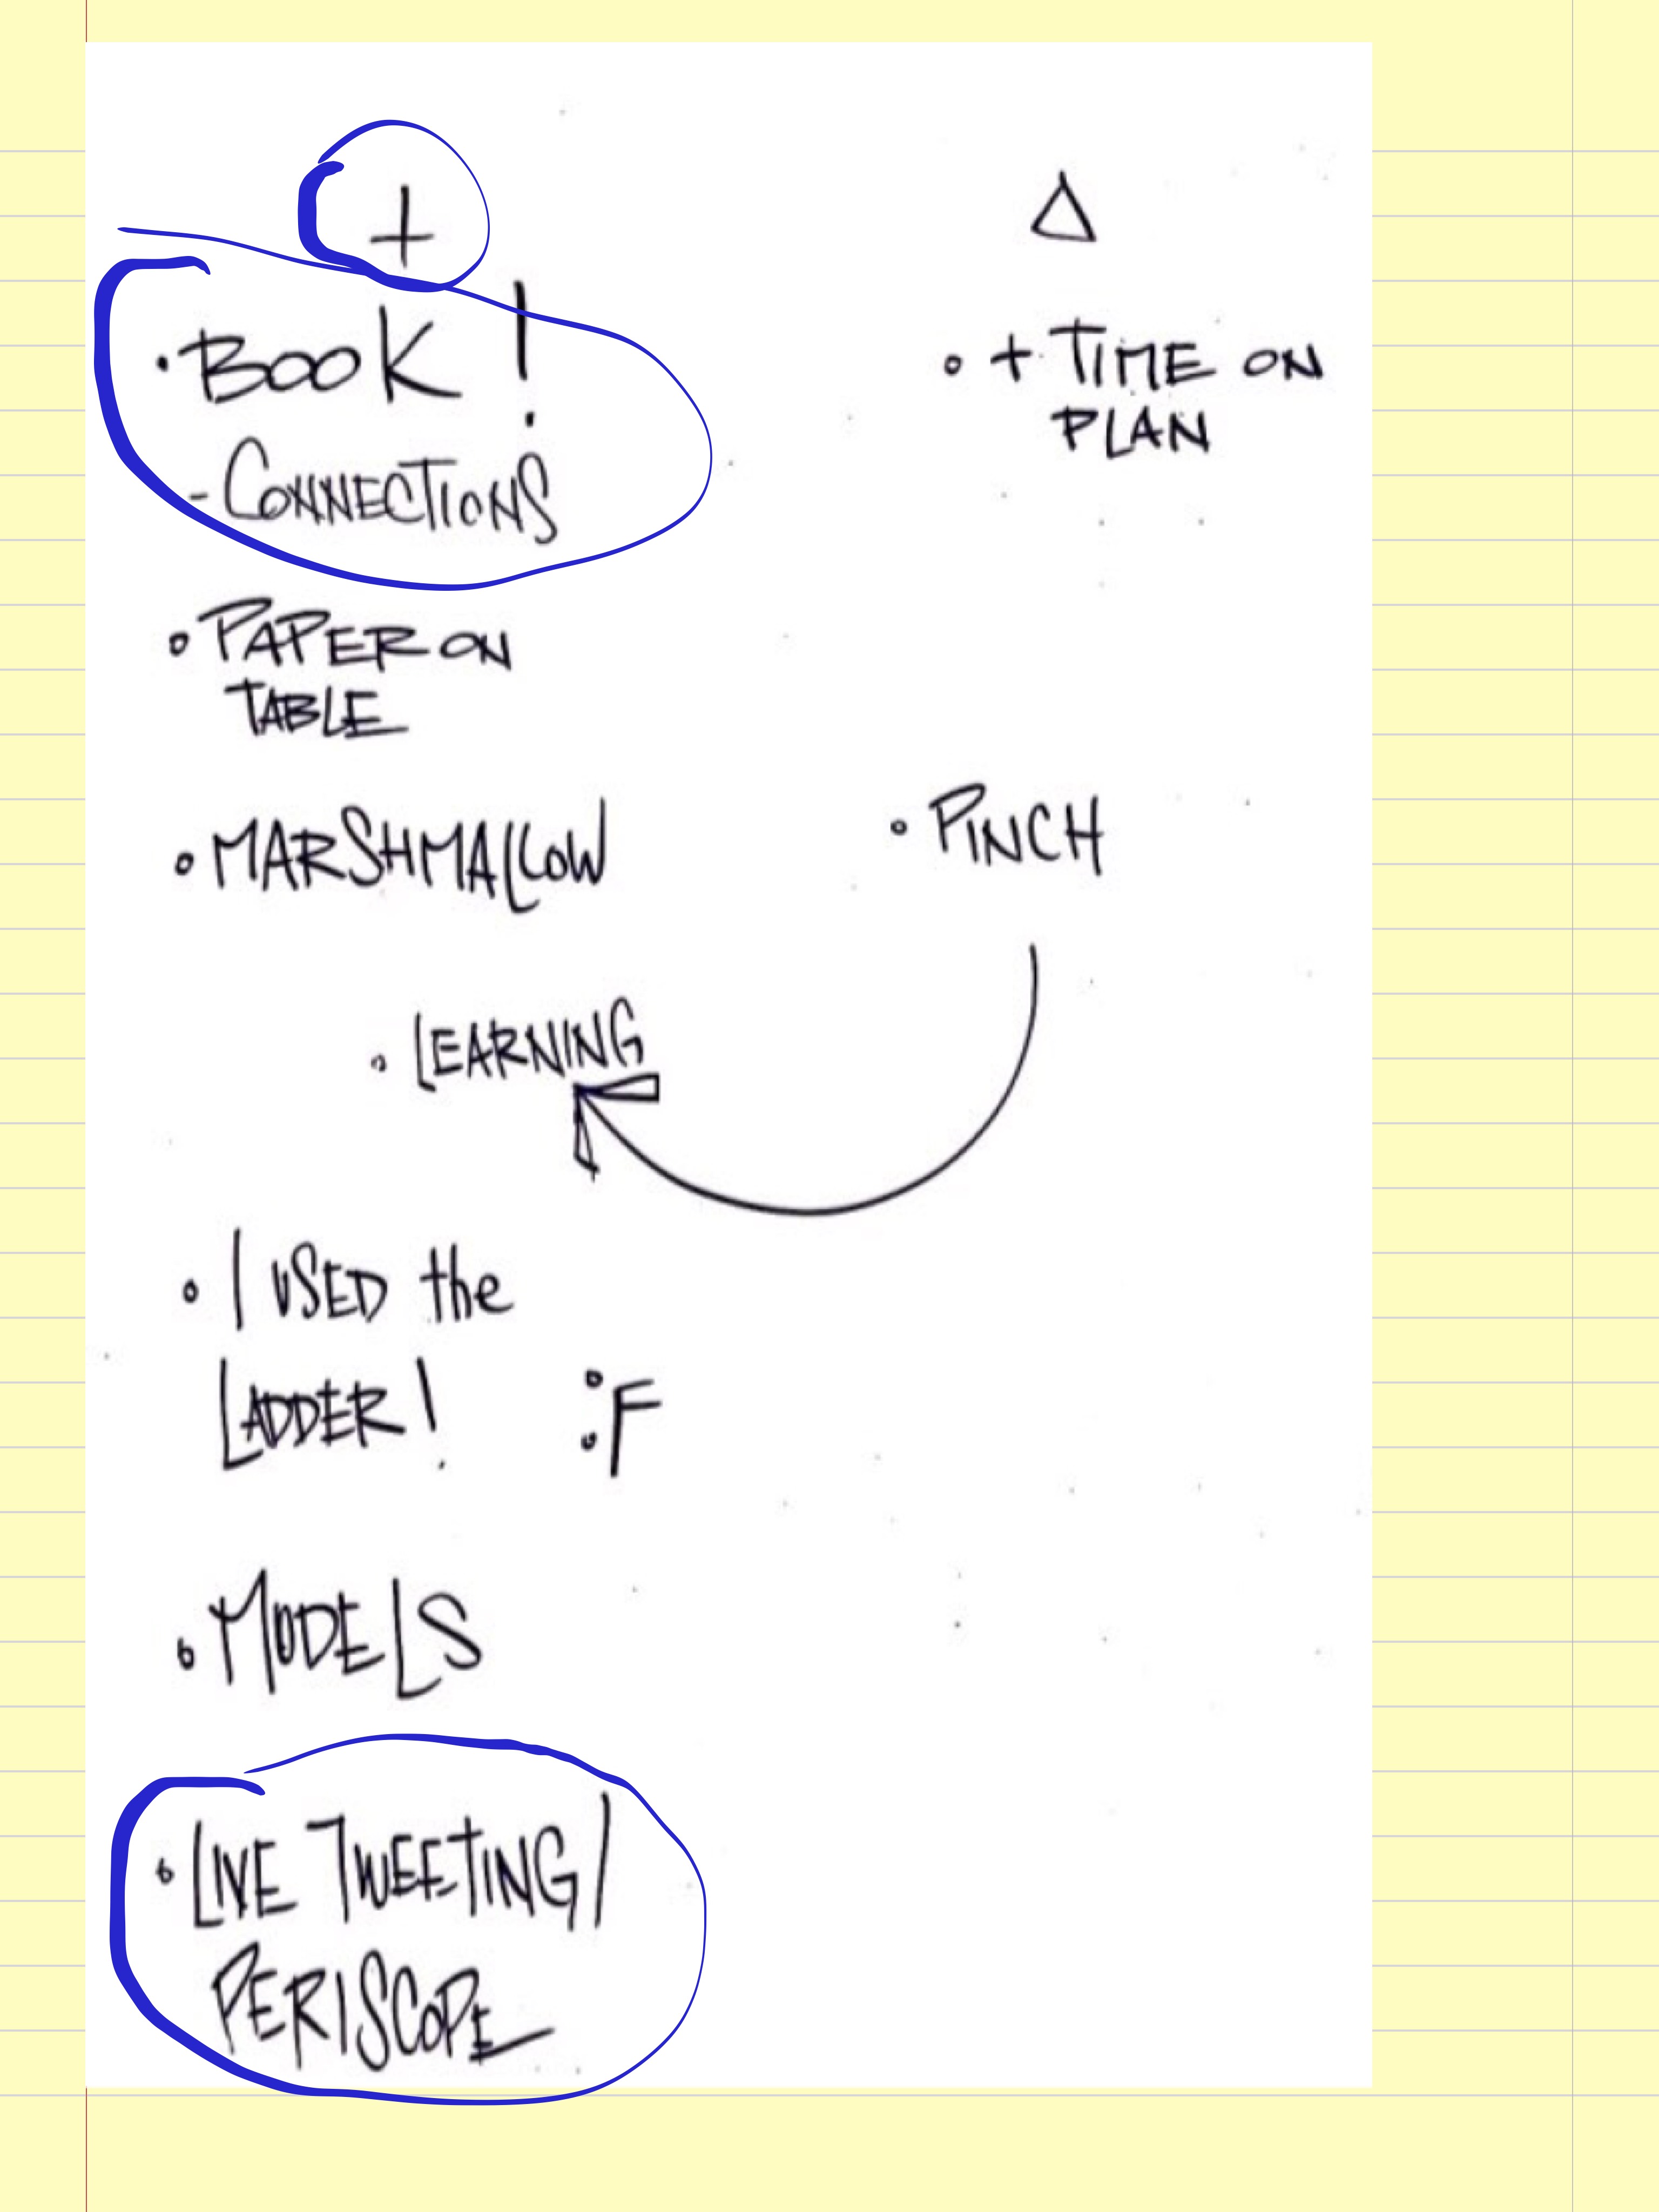 +
Δ
• BOOK!
- CONNECTIONS
• + TIME ON
PLAN
• PAPER ON
TABLE
• MARSHMALLOW
• PINCH
• LEARNING
• I USED the
LADDER! :F
• MODELS
• LIVE TWEETING/
PERISCOPE